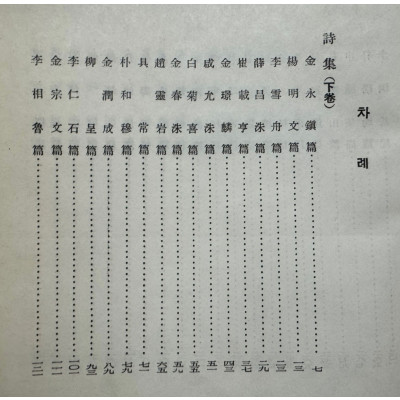 차례
詩集(下卷)
金永鎭篇 七
楊明文篇 一三
李雪舟篇 二三
薛昌洙篇 二九
崔載亨篇 三七
金璟麟篇 四三
咸允洙篇 五一
白菊喜篇 五五
金春洙篇 五九
趙靈岩篇 六五
具常篇 七一
朴和穆篇 七九
金潤成篇 八九
柳呈篇 九三
李仁石篇 一〇一
金宗文篇
李相魯篇